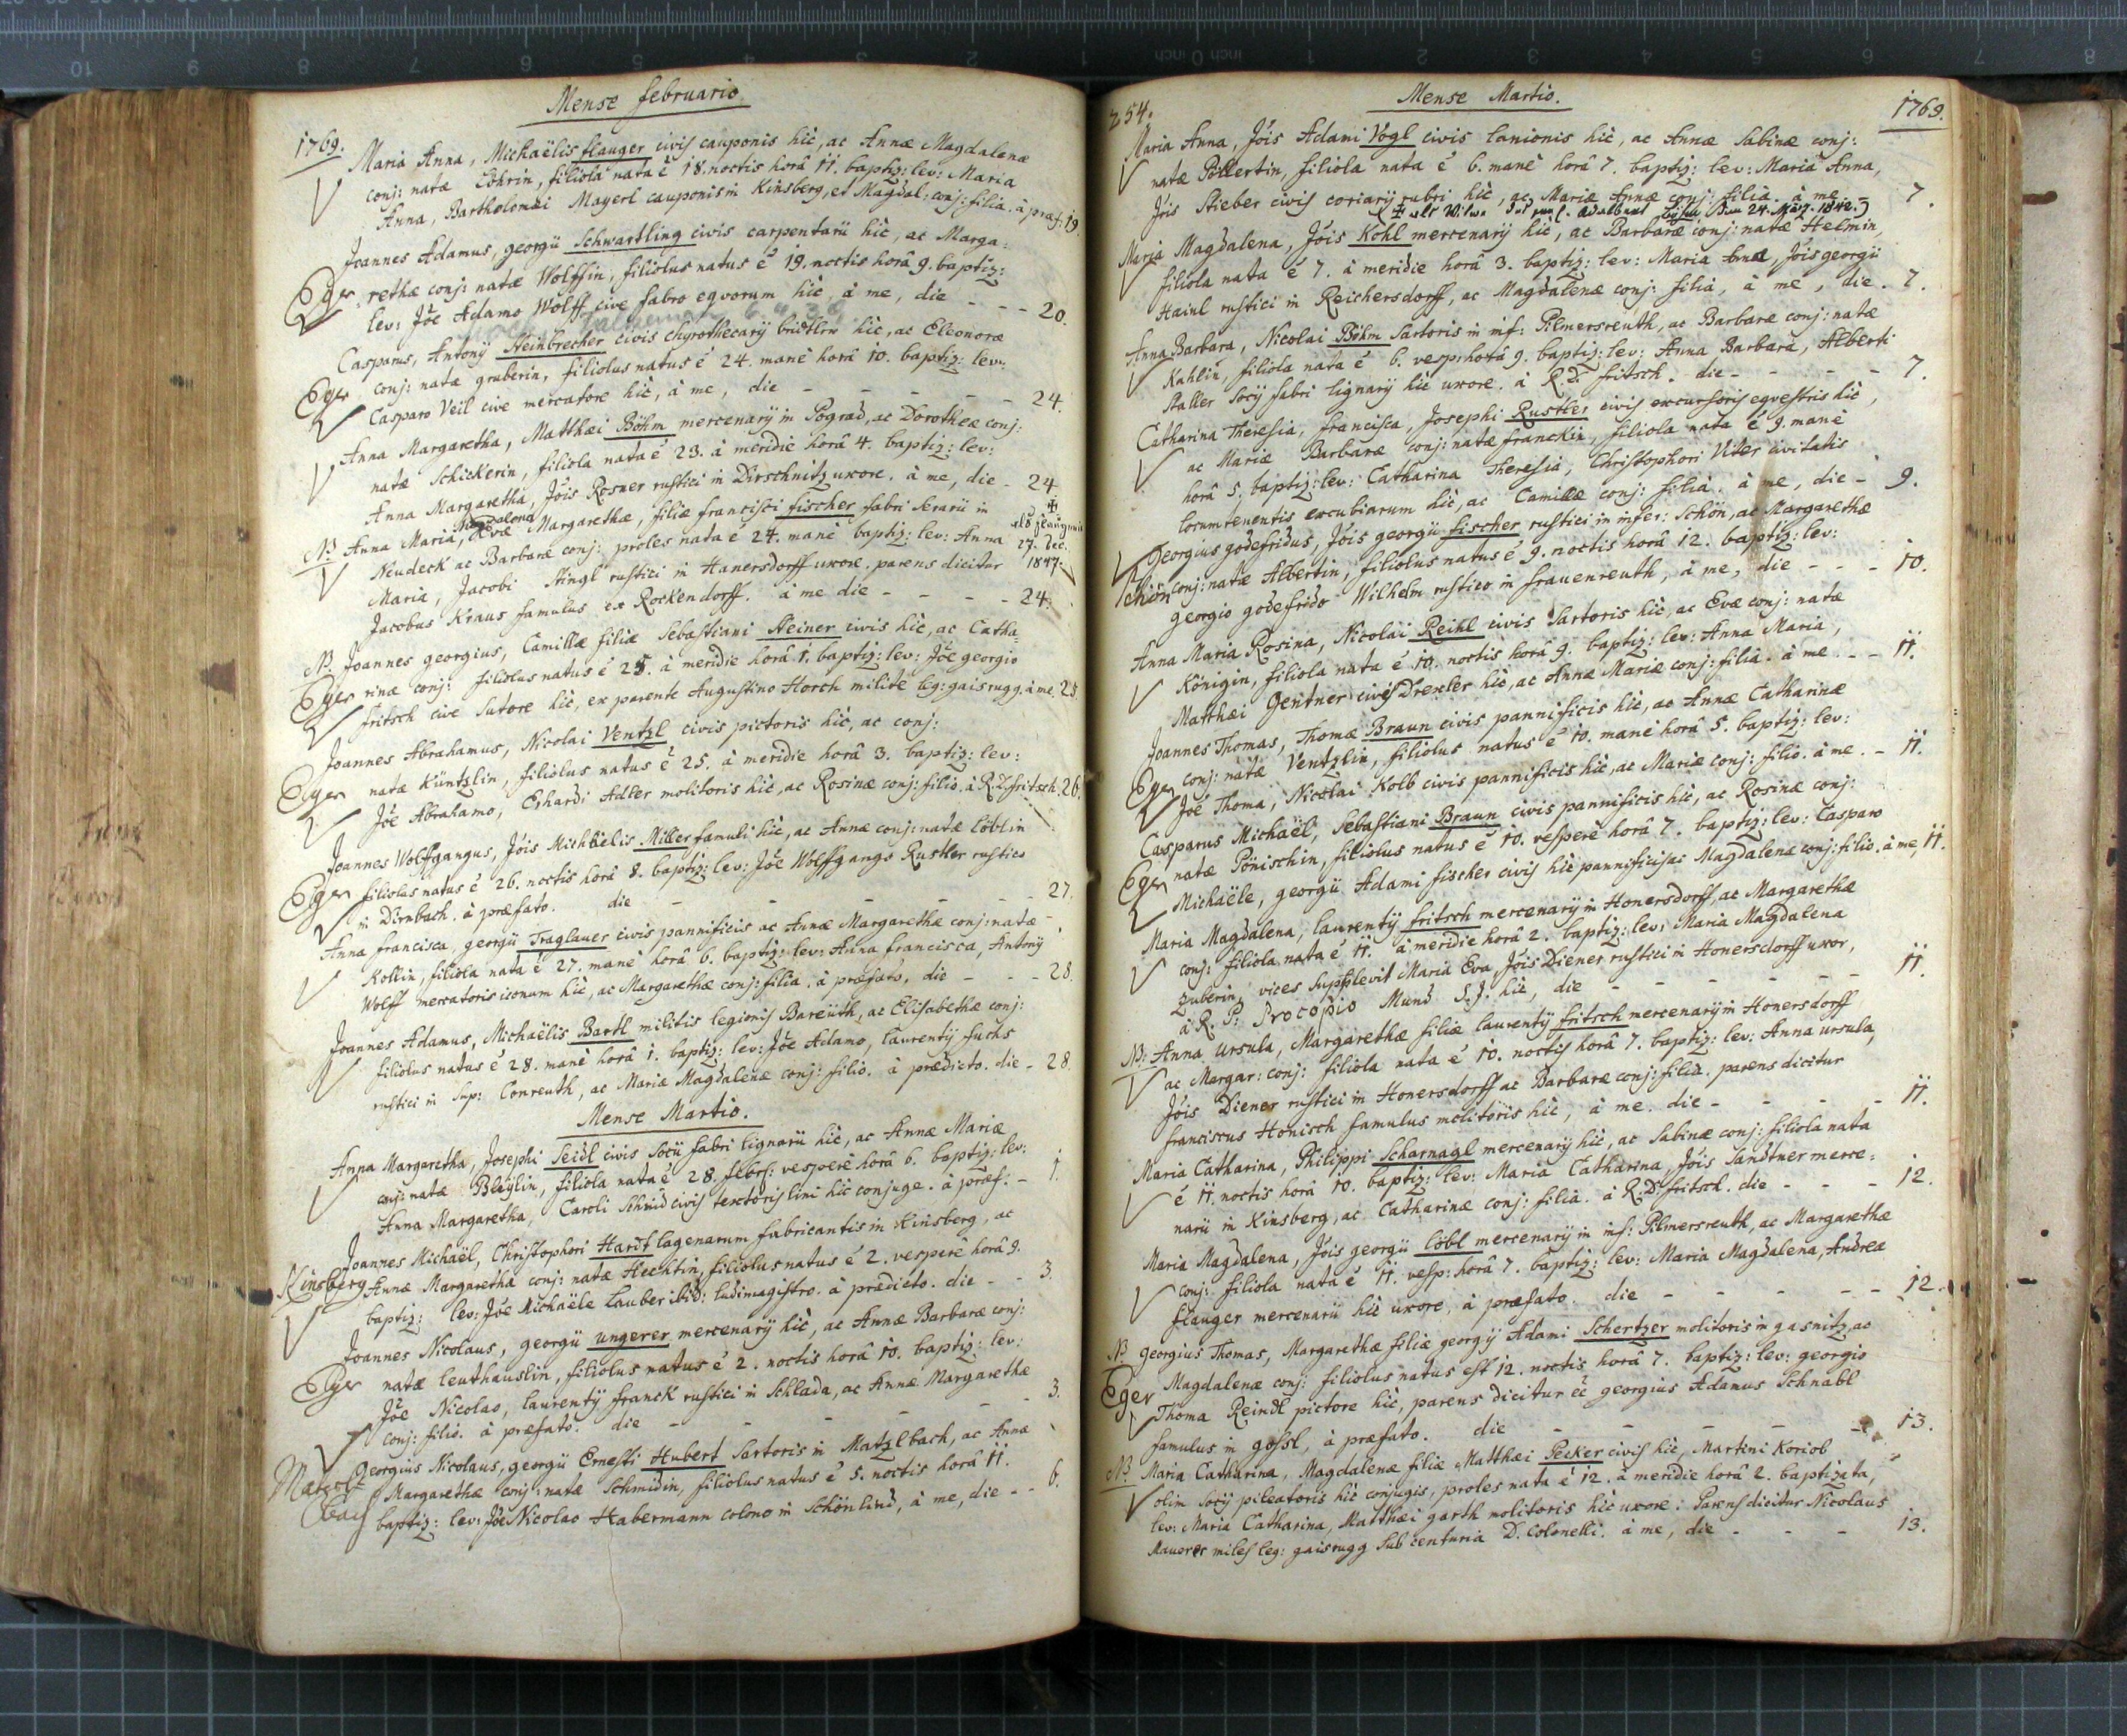 Mense februario.
1769.
Maria Anna, Michaëlis flauger civis cauponis hic, ac Annæ Magdalenæ
conj: natæ Löhrin, filiola nata ē 18. noctis horâ 11. baptiz: lev: Maria
Anna, Bartholomæi Mayerl cauponis in Kinsberg, et Magdal: conj: filia. à præf: 19.
Joannes Adamus, georgii Schwartling civis carpentarii hic, ac Marga=
Eger rethæ conj: natæ Wolffin, filiolus natus ē 19. noctis horâ 9. baptiz:
lev: Jōe Adamo Wolff cive fabro eqvorum hic, à me, die - - 20.
Casparus, Antonÿ Steinbrecher civis chyrothecarÿ hic, ac Eleonoræ
Eger conj: natæ gruberin, filiolus natus ē 24. manè horâ 10. baptiz: lev:
Casparo Veil cive mercatore hic, à me, die - - - - 24.
Anna Margaretha, Matthæi Böhm mercenarÿ in Pograd, ac Dorotheæ conj:
natæ Schickerin, filiola nata ē 23. à meridie horâ 4. baptiz: lev:
Anna Margaretha, Jōis Rosner rustici in Dirschnitz uxore. à me, die - 24
NB Anna Maria, Magdalena Evæ Margarethæ, filiæ francisci fischer fabri ferarii in
Neudeck ac Barbaræ conj: proles nata ē 24. manè baptiz: lev: Anna
27. Dec. 1847.
Maria, Jacobi Stingl rustici in Hanersdorff uxore. parens dicitur
Jacobus Kraus famulus ex Rockendorff. à me die - - - - 24.
NB. Joannes georgius, Camillæ filiæ Sebastiani Steiner civis hic, ac Catha=
Eger rinæ conj: filiolus natus ē 25. à meridie horâ 1. baptiz: lev: Jōe georgio
fritsch cive sutore hic, ex parente Augustino Horch milite leg: gaisrugg. à me. 25
Joannes Abrahamus, Nicolai Ventzl civis pictoris hic, ac conj:
Eger natæ Küntzlin, filiolus natus ē 25. à meridie horâ 3. baptiz: lev:
Jōe Abrahamo, Erhardi Adler molitoris hic, ac Rosinæ conj: filio. à R.D. fritsch. 26.
Joannes Wolffgangus, Jōis Michaelis Miller famuli hic, ac Annæ conj: natæ Löblin
Eger filiolus natus ē 26. noctis horâ 8. baptiz: lev: Jōe Wolffgango Rustler rustico
in Dirnbach. à præfato. die - - - - - 27.
Anna francisca, georgii Traglauer civis pannificis ac Annæ Margarethæ conj: natæ
Kollin, filiola nata ē 27. manè horâ 6. baptiz: lev: Anna francisca, Antonÿ
Wolff mercatoris iconum hic, ac Margarethæ conj: filia. à præfato, die - - - 28.
Joannes Adamus, Michaëlis Bartl militis legionis Bareüth, ac Elisabethæ conj:
filiolus natus ē 28. manè horâ 1. baptiz: lev: Jōe Adamo, laurentÿ fuchs
rustici in sup: Conreuth, ac Mariæ Magdalenæ conj: filio. à prædicto. die - 28.
Mense Martio.
Anna Margaretha, Josephi Seidl civis socii fabri lignarii hic, ac Annæ Mariæ
conj: natæ Bleÿlin, filiola nata ē 28. febr: vesperè horâ 6. baptiz: lev:
Anna Margaretha, Caroli Schmid civis textoris lini hic conjuge. à præf. - 1.
Joannes Michaël, Christophori Hardt lagenarum fabricantis in Kinsberg, ac
Kinsberg Annæ Margarethæ conj: natæ Hechtin, filiolus natus ē 2. vesperè horâ 9.
baptiz: lev: Jōe Michaële Lauber ibid: ludimagistro. à prædicto. die - - 3.
Joannes Nicolaus, georgii ungerer mercenarÿ hic, ac Annæ Barbaræ conj:
Eger natæ leuthauslin, filiolus natus ē 2. noctis horâ 10. baptiz: lev:
Jōe Nicolao, laurentÿ franck rustici in Schlada, ac Annæ Margarethæ
conj: filio. à præfato. die - - - - - 3.
Georgius Nicolaus, georgii Ernesti Hubert sartoris in Matzlbach, ac Annæ
Matzlbach Margarethæ conj: natæ Schmidin, filiolus natus ē 5. noctis horâ 11.
baptiz: lev: Jōe Nicolao Habermann colono in Schönlind, à me, die - - 6.
254.
Mense Martio.
1769.
Maria Anna, Jōis Adami Vogl civis lanionis hic, ac Annæ Sabinæ conj:
natæ Pillertin, filiola nata ē 6. manè horâ 7. baptiz: lev: Maria Anna,
Jōis Stieber civis coriarÿ rubri hic, ac Mariæ Annæ conj: filia. à me 7.
24. März. 1842.
Maria Magdalena, Jōis Kohl mercenarÿ hic, ac Barbaræ conj: natæ Helmin,
filiola nata ē 7. à meridie horâ 3. baptiz: lev: Maria Anna, Jōis georgii
Hainl rustici in Reichersdorff, ac Magdalenæ conj: filia, à me, die. 7.
Anna Barbara, Nicolai Böhm sartoris in inf: Pilmersreuth, ac Barbaræ conj: natæ
Kahlin, filiola nata ē 6. vesp: horâ 9. baptiz: lev: Anna Barbara, Alberti
Staller socÿ fabri lignarÿ hic uxore. à R.D. fritsch. die - - - - 7.
Catharina Theresia, francisca, Josephi Rustler civis excursoris eqvestris hic,
ac Mariæ Barbaræ conj: natæ franckin, filiola nata ē 9. manè
horâ 5. baptiz: lev: Catharina Theresia, Christophori Viter civitatis
locumtenentis excubiarum hic, ac Camillæ conj: filia. à me, die - 9.
Georgius godefridus, Jōis georgii fischer rustici in infer: Schön, ac Margarethæ
Schön conj: natæ Albertin, filiolus natus ē 9. noctis horâ 12. baptiz: lev:
georgio godefrido Wilhelm rustico in frauenreuth, à me, die - - - 10.
Anna Maria Rosina, Nicolai Reihl civis sartoris hic, ac Evæ conj: natæ
Königin, filiola nata ē 10. noctis horâ 9. baptiz: lev: Anna Maria,
Matthæi Gentner civis Drexler hic, ac Annæ Mariæ conj: filia. à me - - 11.
Joannes Thomas, Thomæ Braun civis pannificis hic, ac Annæ Catharinæ
Eger conj: natæ Ventzlin, filiolus natus ē 10. manè horâ 5. baptiz: lev:
Jōe Thoma, Nicolai Kolb civis pannificis hic, ac Mariæ conj: filio. à me. - 11.
Casparus Michaël, Sebastiani Braun civis pannificis hic, ac Rosinæ conj:
Eger natæ Pönischin, filiolus natus ē 10. vesperè horâ 7. baptiz: lev: Casparo
Michaële, georgii Adami fischer civis hic pannificis, ac Magdalenæ conj: filio. à me, 11.
Maria Magdalena, laurentÿ fritsch mercenarÿ in Honersdorff, ac Margarethæ
conj: filiola nata ē 11. à meridie horâ 2. baptiz: lev: Maria Magdalena
Zuberin, vices supplevit Maria Eva, Jōis Diener rustici in Honersdorff uxor,
à R. P: Procopio Mund S.J. hic, die - - - - - 11.
NB: Anna Ursula, Margarethæ filiæ laurentÿ fritsch mercenarÿ in Honersdorff
ac Margar: conj: filiola nata ē 10. noctis horâ 7. baptiz: lev: Anna ursula,
Jōis Diener rustici in Honersdorff ac Barbaræ conj: filia. parens dicitur
franciscus Honisch famulus molitoris hic, à me. die - - - - 11.
Maria Catharina, Philippi Scharnagl mercenarÿ hic, ac Sabinæ conj: filiola nata
ē 11. noctis horâ 10. baptiz: lev: Maria Catharina, Jōis Sandtner merce=
narii in Kinsberg, ac Catharinæ conj: filia. à R.D. fritsch. die - - - 12.
Maria Magdalena, Jōis georgii Löbl mercenarÿ in inf: Pilmersreuth, ac Margarethæ
conj: filiola nata ē 11. vesp: horâ 7. baptiz: lev: Maria Magdalena, Andreæ
flauger mercenarii hic uxore, à præfato. die - - - - - 12.
NB georgius Thomas, Margarethæ filiæ georgÿ Adami Schertzer molitoris in gasnitz, ac
Eger Magdalenæ conj: filiolus natus est 12. noctis horâ 7. baptiz: lev: georgio
Thoma Reindl pictore hic, parens dicitur ēē georgius Adamus Schnabl
famulus in gossl, à præfato. die - - - - - 13.
NB. Maria Catharina, Magdalenæ filiæ Matthæi Pecker civis hic, Martini Koriob
olim socÿ pileatoris hic conjugis, proles nata ē 12. à meridie horâ 2. baptizata,
lev: Maria Catharina, Matthæi garth molitoris hic uxore: Parens dicitur Nicolaus
Maverer miles leg: gaisrugg sub centuria D. Colonelli. à me, die - - - 13.